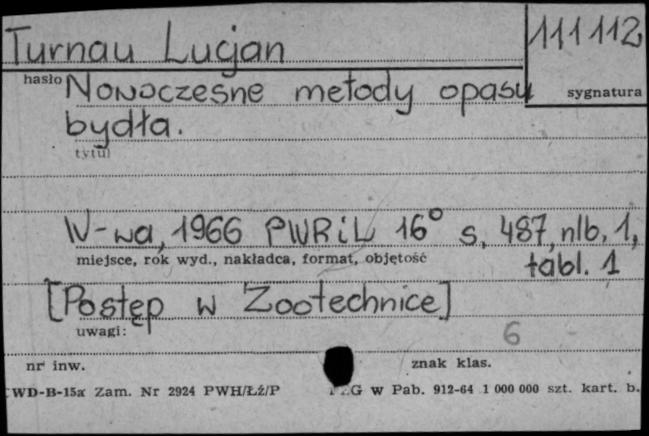 Turnau Lucjan 111112
hasło
sygnatura
Nowoczesne metody opasu
bydła.
tytuł
W-wa, 1966 PWRiL 16° s. 487, nlb, 1,
miejsce, rok wyd., nakładca, format, objętość
tabl. 1
[Postęp w Zootechnice]
uwagi:
6
nr inw. znak klas.
WD-B-15a Zam. Nr 2924 PWH/Łź/P G w Pab. 912-64 1 000 000 szt. kart. b.